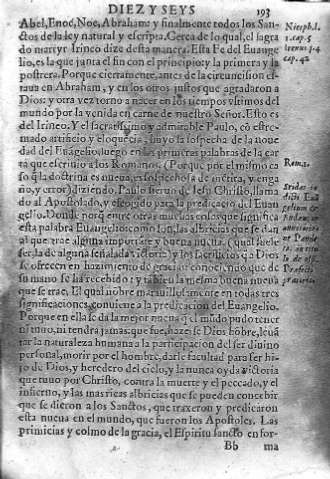 DIEZ Y SEYS 193
Abel, Enoc, Noe, Abraham: y finalmente todos los San-
ctos de la ley natural y escripta. Cerca de lo qual, el sagra
do martyr Irineo dize desta manera. Esta Fe del Euange-
lio, es la que junta el fin con el principio: y la primera y la
postrera. Porque ciertamente, antes de la circuncision es-
taua en Abraham, y en los otros justos que agradaron a
Dios: y otra vez torno a nacer en los tiempos vltimos del
mundo por la venida en carne de nuestro Señor. Esto es
del Irineo. Y el sacratissimo y admirable Paulo, cō estre-
mado artificio y eloquēcia, huyo la sospecha de la noue
dad del Euangelio luego en las primeras palabras de la car
ta que escriuio a los Romanos. (Porque, por el mismo ca
so q̄ la doctrina es nueua, es sospechosa de mētira, y enga
ño, y error) diziendo. Paulo sieruo de Iesu Christo, llama
do al Apostolado, y escogido para la predicacion del Euan
gelio. Donde porq̄ entre otras muchas cosas que significa
esta palabra Euangelio: como son, las albricias que se dan
al que trae alguna importāte y buena nueua. (qual suele
ser, la de alguna señalada victoria) y los sacrificios q̄ a Dios
se ofrecen en hazimiento de gracias conociendo que de
su mano se ha recebido: y tābien la mesma buena nueua
que se trae. El qual nōbre marauillosamente en todas tres
significaciones, conuiene a la predicacion del Euangelio.
Porque en ella se da la mejor nueua q̄ el mūdo pudo tener
ni tuuo, ni tendra jamas: que fue, hazerse Dios hōbre, leuā
tar la naturaleza humana a la participacion del ser diuino
personal, morir por el hombre, darle facultad para ser hi-
jo de Dios, y heredero del cielo, y la nunca oyda victoria
que tuuo por Christo, contra la muerte y el peccado, y el
infierno, y las mas ricas albricias que se pueden concebir
que se dieron a los Sanctos, que traxeron y predicaron
esta nueua en el mundo, que fueron los Apostoles. Las
primicias y colmo de la gracia, el Espiritu sancto en for-
Bb ma
Niceph. l.
1. cap. 5
Ireneus l. 4
cap. 42
Roma. 1